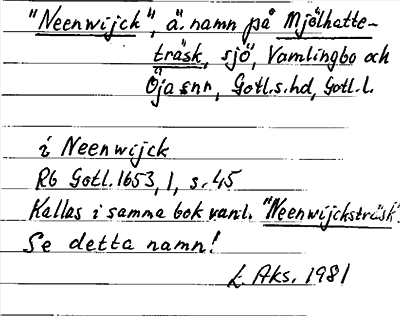 "Neenwijck", ä. namn på Mjölhatte-
träsk, sjö, Vamlingbo och
Öja snr, Gotl.s.hd, Gotl.l.
i Neenwijck
Rb Gotl. 1653, 1, s. 45
Kallas i samma bok vanl. "Neenwijcksträsk".
Se detta namn!
L. Aks. 1981